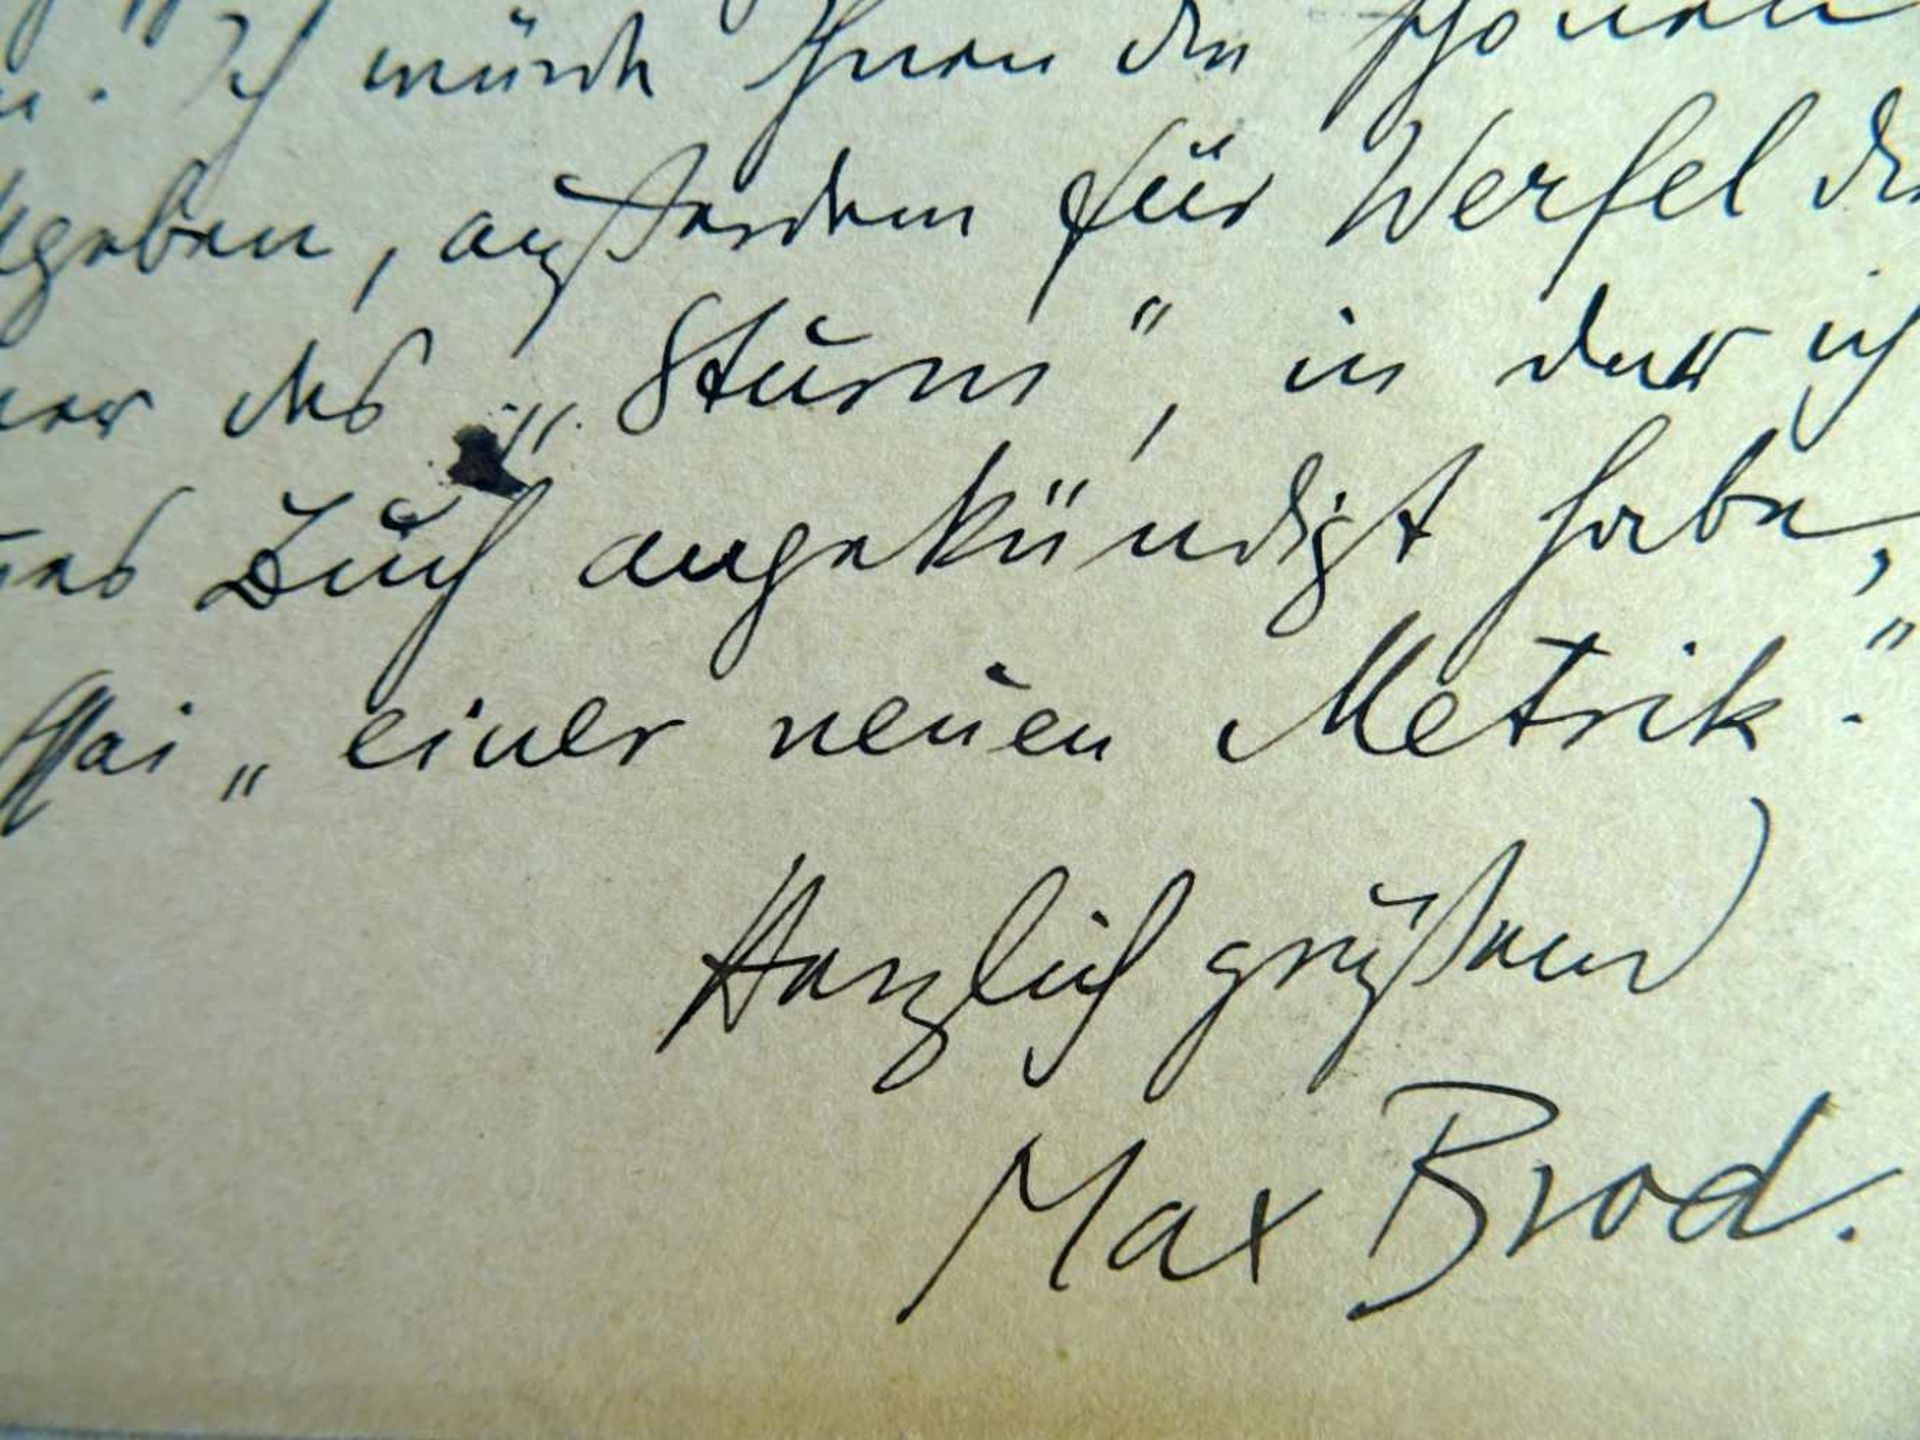 Ich würde Ihnen den schönen
geben, außerdem für Werfel die
des „Sturm“, in der ich
Buch angekündigt habe,
„einer neuen Metrik.“
Herzlich grüßend
Max Brod.